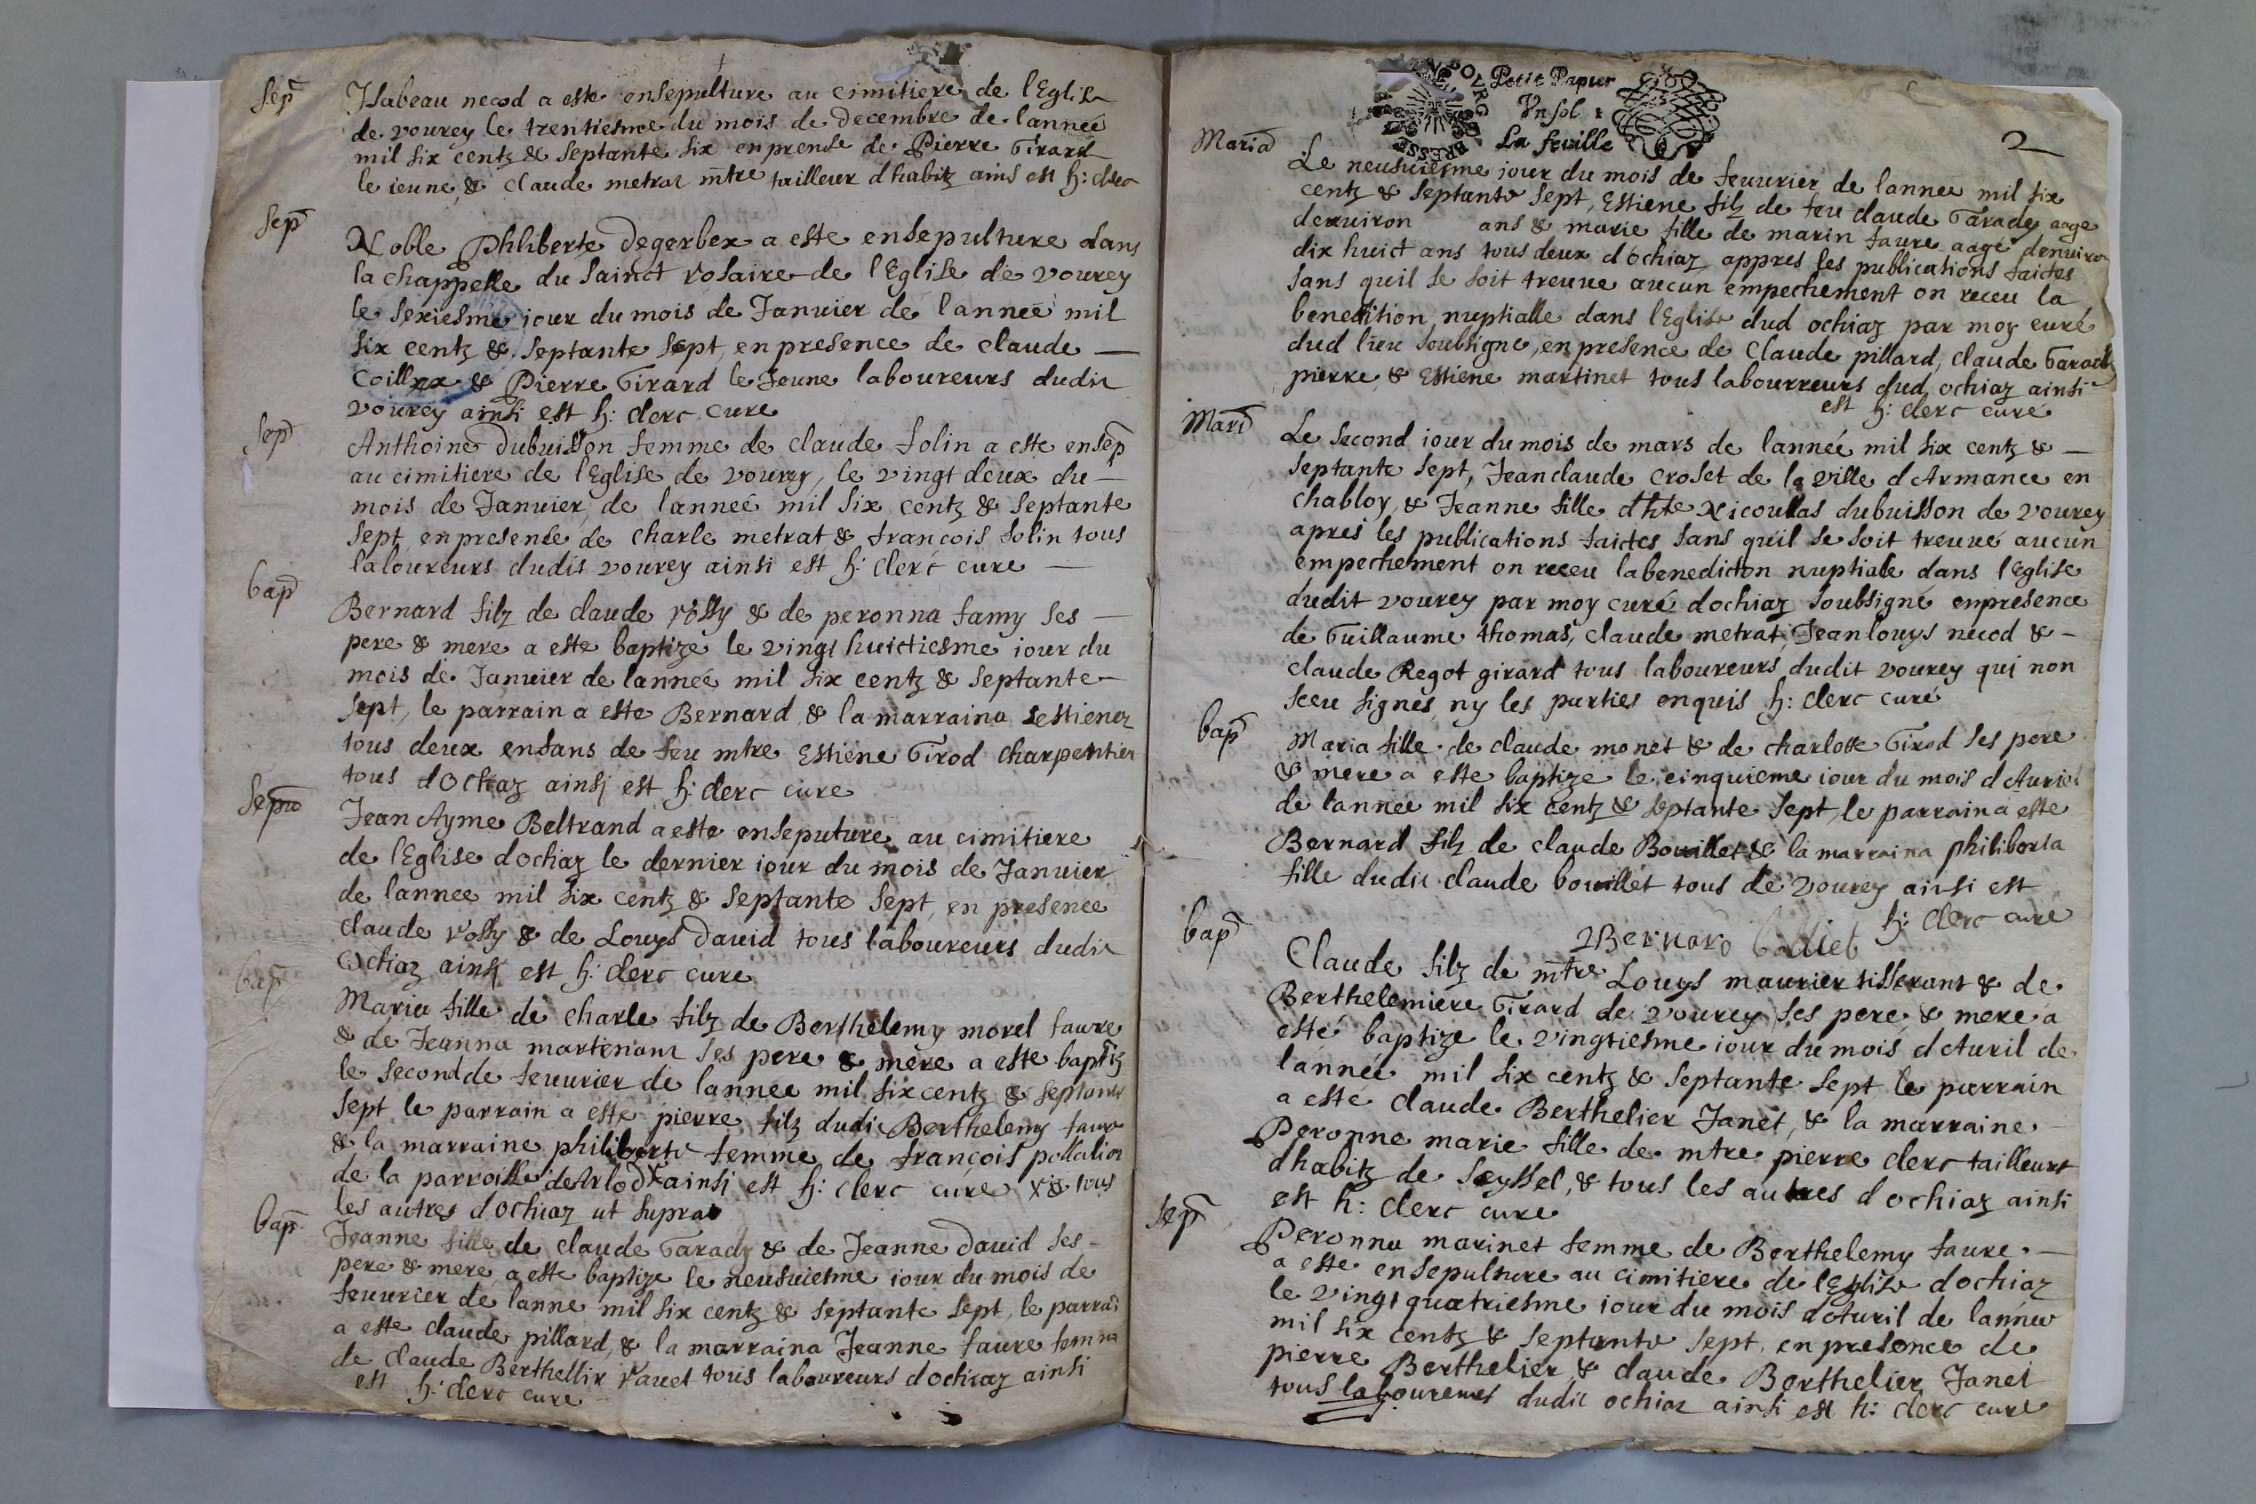 Sep
Isabeau necod a este ensepulture au cimitiere de l'Eglise
de vourey le trentiesme du mois de decembre de lanneé
mil six centz & septante six en presence de Pierre Girard
le ieune, & Claude metrat mtre tailleur dhabitz ains est h: clerc
Sep
Noble Philiberte Degerbex a este ensepulture dans
la chappelle du sainct rosaire de l'Eglise de vourey
le sexiesme iour du mois de Januier de lanneé mil
six centz & septante sept, en presence de claude —
& Pierre Girard le Jeune laboureurs dudit
vourey ainsi est h: clerc cure
Sep
Anthoine dubuisson femme de claude solin a este ensep
au cimitiere de l'Eglise de vourey, le vingt deux du —
mois de Januier, de lanneé mil six centz & septante
sept, en presence de charle metrat & francois solin tous
laboureurs dudit vourey ainsi est h: clerc cure —
bap
Bernard filz de claude rossy & de peronna famy ses —
pere & mere a este baptize le vingt huictiesme iour du
mois de Januier de lanneé mil six centz & septante —
sept, le parrain a este Bernard, & la marraina Lestienez
tous deux enfans de feu mtre Estiene Girod charpentier
tous dOchiaz ainsi est h: clerc cure
Sepu
Jean Ayme Beltrand a este enseputure au cimitiere
de l'Eglise dochiaz le dernier iour du mois de Januier
de lannee mil six centz & septante sept, en presence
claude rossy & de Louys dauid tous laboureurs dudit
Ochiaz ainsi est h: clerc cure
bap
Maria fille de charle filz de Berthelemy morel faure
& de Jeanna martenant ses pere & mere a este baptiz
le second de feuurier de lannee mil six centz & septante
sept le parrain a este pierre filz dudit Berthelemy faure
& la marraine philiberte femme de françois pollation
de la parroisse de Arlod x ainsi est h: clerc cure x & tous
les autres dochiaz ut supra
bap
Jeanne fille de claude Garady & de Jeanne dauid ses —
pere & mere, a este baptize le neufuiesme iour du mois de
feuurier de lanne mil six centz & septante sept, le parrai
a este claude pillard, & la marraina Jeanne faure femma
de claude Berthellir rauet tous laboureurs dochiaz ainsi
est h: clerc cure
Petit Papier
Vn sol
La feuille
BRESSE
2
Maria
Le neufuiesme iour du mois de feuurier de lannee mil six
centz & septante sept, Estiene filz de feu claude Garady aage
denuiron ans & marie fille de marin faure aage denuiron
dix huict ans tous deux dochiaz appres les publications faictes
sans quil se soit treuue aucun empechement on receu la
benedition nuptialle dans lEglise dud ochiaz par moy curé
dud lieu soubsigne, en presence de Claude pillard, claude Garady
pierre & Estiene martinet tous labourreurs dud ochiaz ainsi
est h: clerc curé
Mari
Le second iour du mois de mars de lanneé mil six centz & —
septante sept, Jeanclaude croset de la ville dArmance en
chabloy, & Jeanne fille dhte Nicoullas dubuisson de vourey
apres les publications faictes sans quil se soit treuué aucun
empechement on receu la benedicton nuptiale dans l'Eglise
dudit vourey par moy curé dochiaz soubsigné enpresence
de Guillaume thomas, claude metrat, Jeanlouys necod & —
claude Regot girard tous laboureurs dudit vourey qui non
sceu signés ny les parties enquis h: clerc curé
bap
Maria fille de claude monet & de charlotte Girod ses pere
& mere a este baptize le cinquieme iour du mois dAuriel
de lannee mil six centz & septante sept, le parrain a este
Bernard filz de claude Bouillet & la marraina philiberta
fille dudit claude bouillet tous de vourey ainsi est
h: clerc cure
Bernard
bap
Claude filz de mtre Louys maurier tisserant & de
Berthelemiere Girard de vourey ses pere & mere a
esté baptize le vingtiesme iour du mois dAuril de
lannée mil six centz & septante sept le parrain
a esté claude Berthelier Janet, & la marraine
Peronne marie fille de mtre pierre clerc tailleurt
dhabitz de seyssel, & tous les autres dochiaz ainsi
est h: clerc cure
sep
Peronna marinet femme de Berthelemy faure —
a este ensepulture au cimitiere de l'Eglise dochiaz
le vingt quatriesme iour du mois dAuril de lannee
mil six centz & septante sept, en presence de
pierre Berthelier & claude Berthelier Janet
tous laboureurs dudit ochiaz ainsi est h: clerc cure